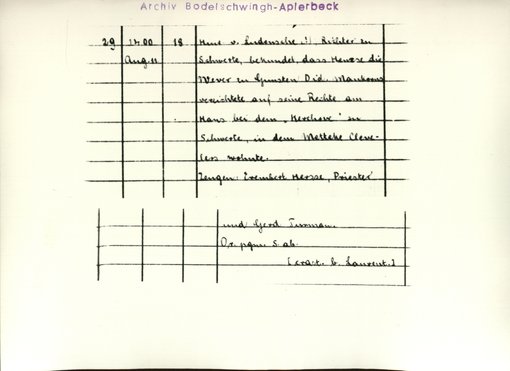 Archiv Bodelschwingh-Aplerbeck
29 1400 18 Hune v. Ludensche
Aug. 11 Schwerte, bekundet, dass die
Wever zu Gunsten Did.
verzichtete auf seine Rechte am
Haus bei dem "Kerchove" in
Schwerte, in dem Metteke Cleve-
lers wohnte.
Zeugen: Erembert Hersse, Priester
und Gerd Tusman.
Or. pgm. S. ab.
[crast. b. Laurent.]